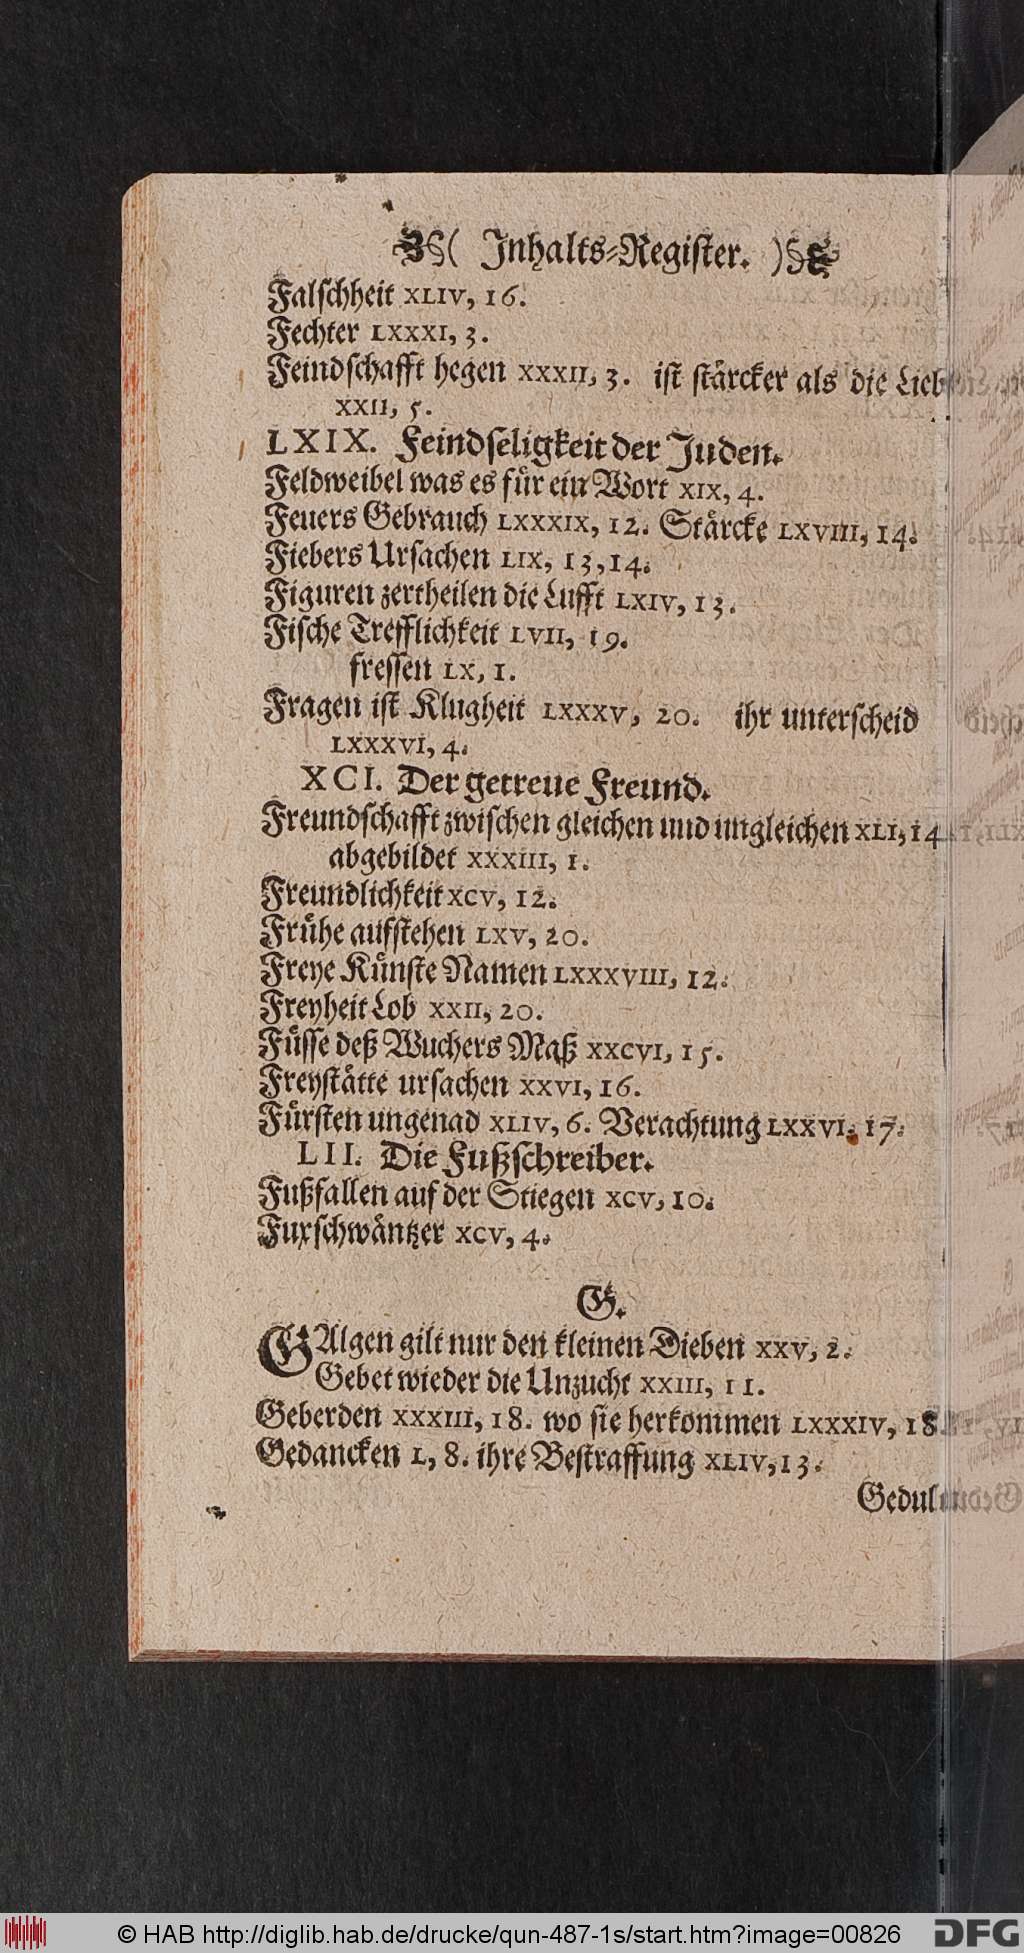 ( Inhalts-Register. )
Falschheit XLIV, 16.
Fechter LXXXI, 3.
Feindschafft hegen XXXII, 3. ist stårcker als die Lieb
XXII, 5.
LXIX. Feindseligkeit der Juden.
Feldweibel was es fůr ein Wort XIX, 4.
Feuers Gebrauch LXXXIX, 12. Stårcke LXVIII, 14.
Fiebers Ursachen LIX, 13, 14.
Figuren zertheilen die Lufft LXIV, 13.
Fische Trefflichkeit LVII, 19.
fressen LX, 1.
Fragen ist Klugheit LXXXV, 20. ihr unterscheid
LXXXVI, 4.
XCI. Der getreue Freund.
Freundschafft zwischen gleichen und ungleichen XLI, 14
abgebildet XXXIII, 1.
Freundlichkeit XCV, 12.
Frůhe aufstehen LXV, 20.
Freye Kůnste Namen LXXXVIII, 12.
Freyheit Lob XXII, 20.
Fůsse deß Wuchers Maß XXCVI, 15.
Freyståtte ursachen XXVI, 16.
Fůrsten ungenad XLIV, 6. Verachtung LXXVI, 17.
LII. Die Fußschreiber.
Fußfallen auf der Stiegen XCV, 10.
Fuxschwåntzer XCV, 4.
G.
GAlgen gilt nur den kleinen Dieben XXV, 2.
Gebet wieder die Unzucht XXIII, 11.
Geberden XXXIII, 18. wo sie herkommen LXXXIV, 18.
Gedancken L, 8. ihre Bestraffung XLIV, 13.
Gedul
© HAB http://diglib.hab.de/drucke/qun-487-1s/start.htm?image=00826
DFG